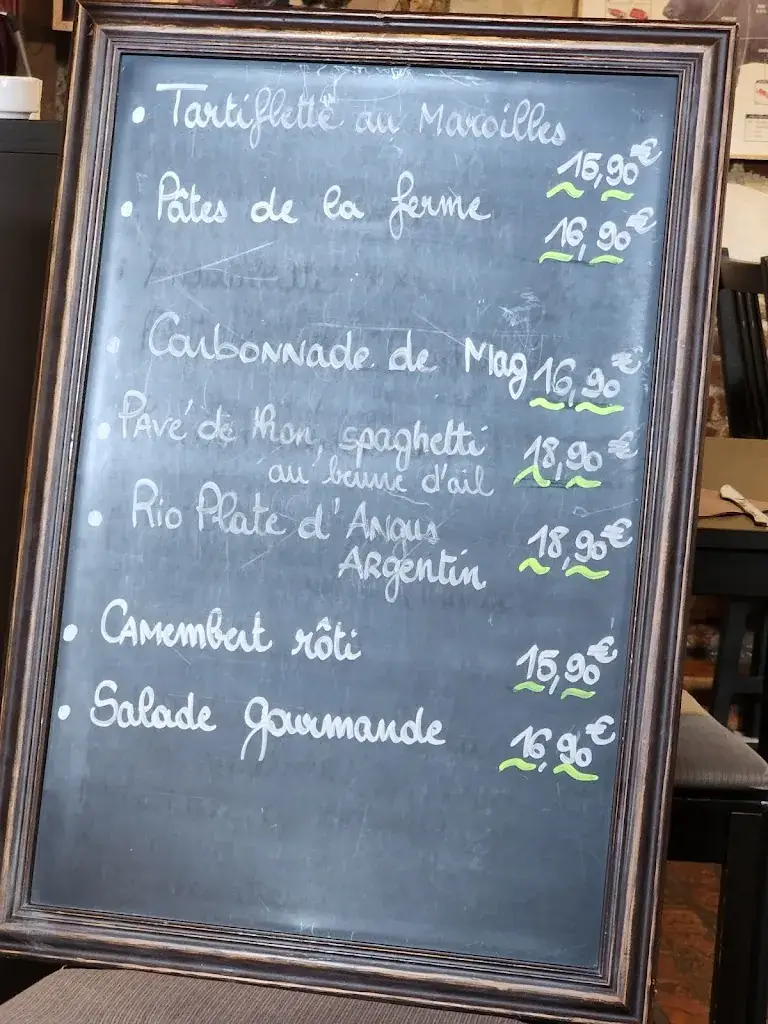 • Tartiflette au Maroilles
15,90€
• Pâtes de la ferme
16,90€
• Carbonnade de Mag 16,90€
• Pavé de thon, spaghetti
au beurre d'ail 18,90€
• Rio Plate d'Angus
Argentin 18,90€
• Camembert rôti
15,90€
• Salade gourmande
16,90€